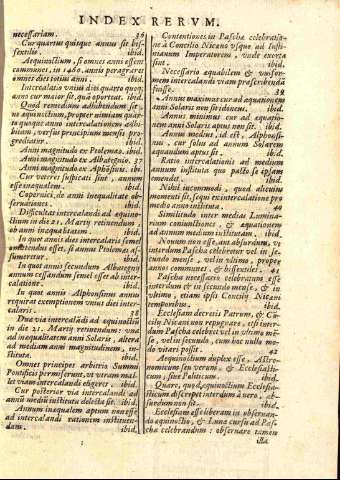 INDEX RERVM.
necessariam. 36
Cur quartus quisque annus sit bis-
sextilis. ibid.
Aequinoctium, si omnes anni essent
communes, in 1460. annis peragrare
omnes dies totius anni. ibid.
Intercalatio vnius diei quarto quoq;
anno cur maior sit, quā oportet. ibid.
Quod remedium adhibendum sit v-
no aequinoctium, propter nimiam quar-
to quoque anno intercalationem adhi-
bitam, versus principium mensis pro-
grediatur. ibid.
Anni magnitudo ex Ptolemaeo. ibid.
Anni magnitudo ex Albategnio. 37
Anni magnitudo ex Alphōsinis. ibi.
Cur veteres suspicati sint, annum
esse inaequalem. ibid.
Copernici, de anni inaequalitate ob-
seruationes. ibid.
Difficultas intercalandi ad aequino-
ctium in die 21. Martij retinendum,
ob anni inaequabitatem. ibid.
In quot annis dies intercalatis semel
omittendus esset, si annus Ptolemaei as-
sumeretur. ibid.
In quot annis secundum Albategny
annum cessandum semel esset ab inter-
calatione. ibid.
In quot annis Alphonsinus annus
requirat exemptionem vnius diei inter-
calaris. 38
Dua via intercalādi ad aequinoctiū
in die 21. Martij retinendum: vna
ad inaequalitatem anni Solaris, altera
ad mediam anni magnitudinem, in-
stituta. ibid.
Omnes principes arbitrio Summi
Pontificis permiserunt, vt veram mal-
let viam intercalandi eligeret. ibid.
Cur posterior via intercalandi ad
annū mediū instituta delecta sit. ibid.
Annum inaequalem aptum non esse
ad intercalandi rationem instituen-
dam. ibid.
Contentiones in Pascha celebratio-
ne à Concilio Nicaeno vsque ad Iusti-
nianum Imperatorem, vnde exorta
sint. ibid.
Necessario aequabilem & vnifor-
mem intercalandi viam praescribendā
fuisse. 39
Annus maximus cur ad aequationem
anni Solaris non sit idoneus. ibid.
Annus minimus cur ad aequatio-
nem anni Solaris aptus non sit. ibid.
Annus medius, id est, Alphonsi-
nus, cur solus ad annum Solarem
aequandum aptus sit. ibid.
Ratio intercalationis ad medium
annum instituta quo pacto se ipsam
emendet. ibid.
Nihil incommodi, quod alicuius
momenti sit, sequi ex intercalatione pro
medio anno instituta. 40
Similitudo inter medias Lumina-
rium coniunctiones, & aequationem
ad annum medium institutam. ibid.
Nouum non esse, aut absurdum, vt
interdum Pascha celebretur vel in se-
cundo mense, vel in vltimo, propter
annos communes, & bissextiles. 41
Pascha necessario celebratum esse
interdum & in secundo mense, & in
vltimo, etiam ipsis Concilij Nicaeni
temporibus. ibid.
Ecclesiam decretis Patrum, & Cō-
cilij Nicaeni non repugnare, etsi inter-
dum Pascha celebret vel in vltimo mē-
se, vel in secundo, cum hoc nullo mo-
do vitari possit. 42
Aequinoctium duplex esse, Astro-
nomicum seu verum, & Ecclesiasti-
cum, siue Politicum. ibid.
Quare, quòd aequinoctium Ecclesia-
sticum discrepet interdum à vero, ab-
surdum non sit. ibid.
Ecclesiam esse liberam in obseruan-
do aequinoctio, & Luna cursu ad Pas-
cha celebrandum: obseruare tamen
illa